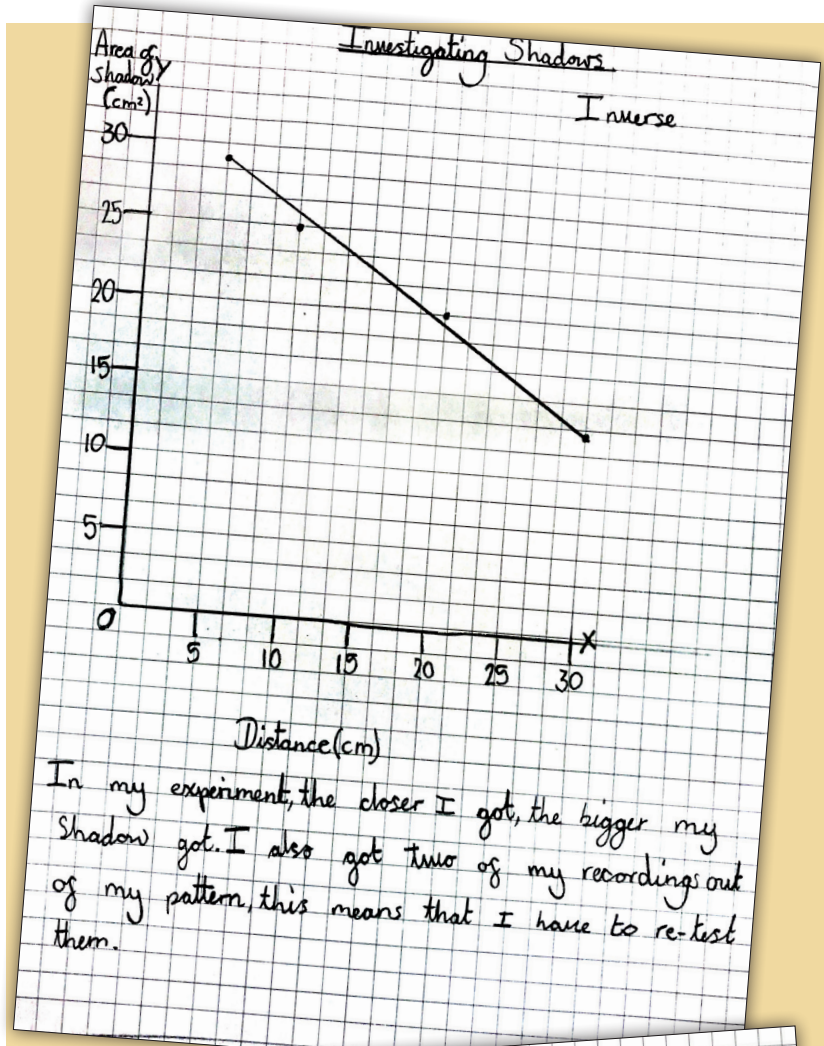 Investigating Shadows
Area of y
Shadow
(cm²)
Inverse
30
25
20
15
10
5
0
5 10 15 20 25 30 X
Distance (cm)
In my experiment, the closer I got, the bigger my
Shadow got. I also got two of my recordings out
of my pattern, this means that I have to re-test
them.